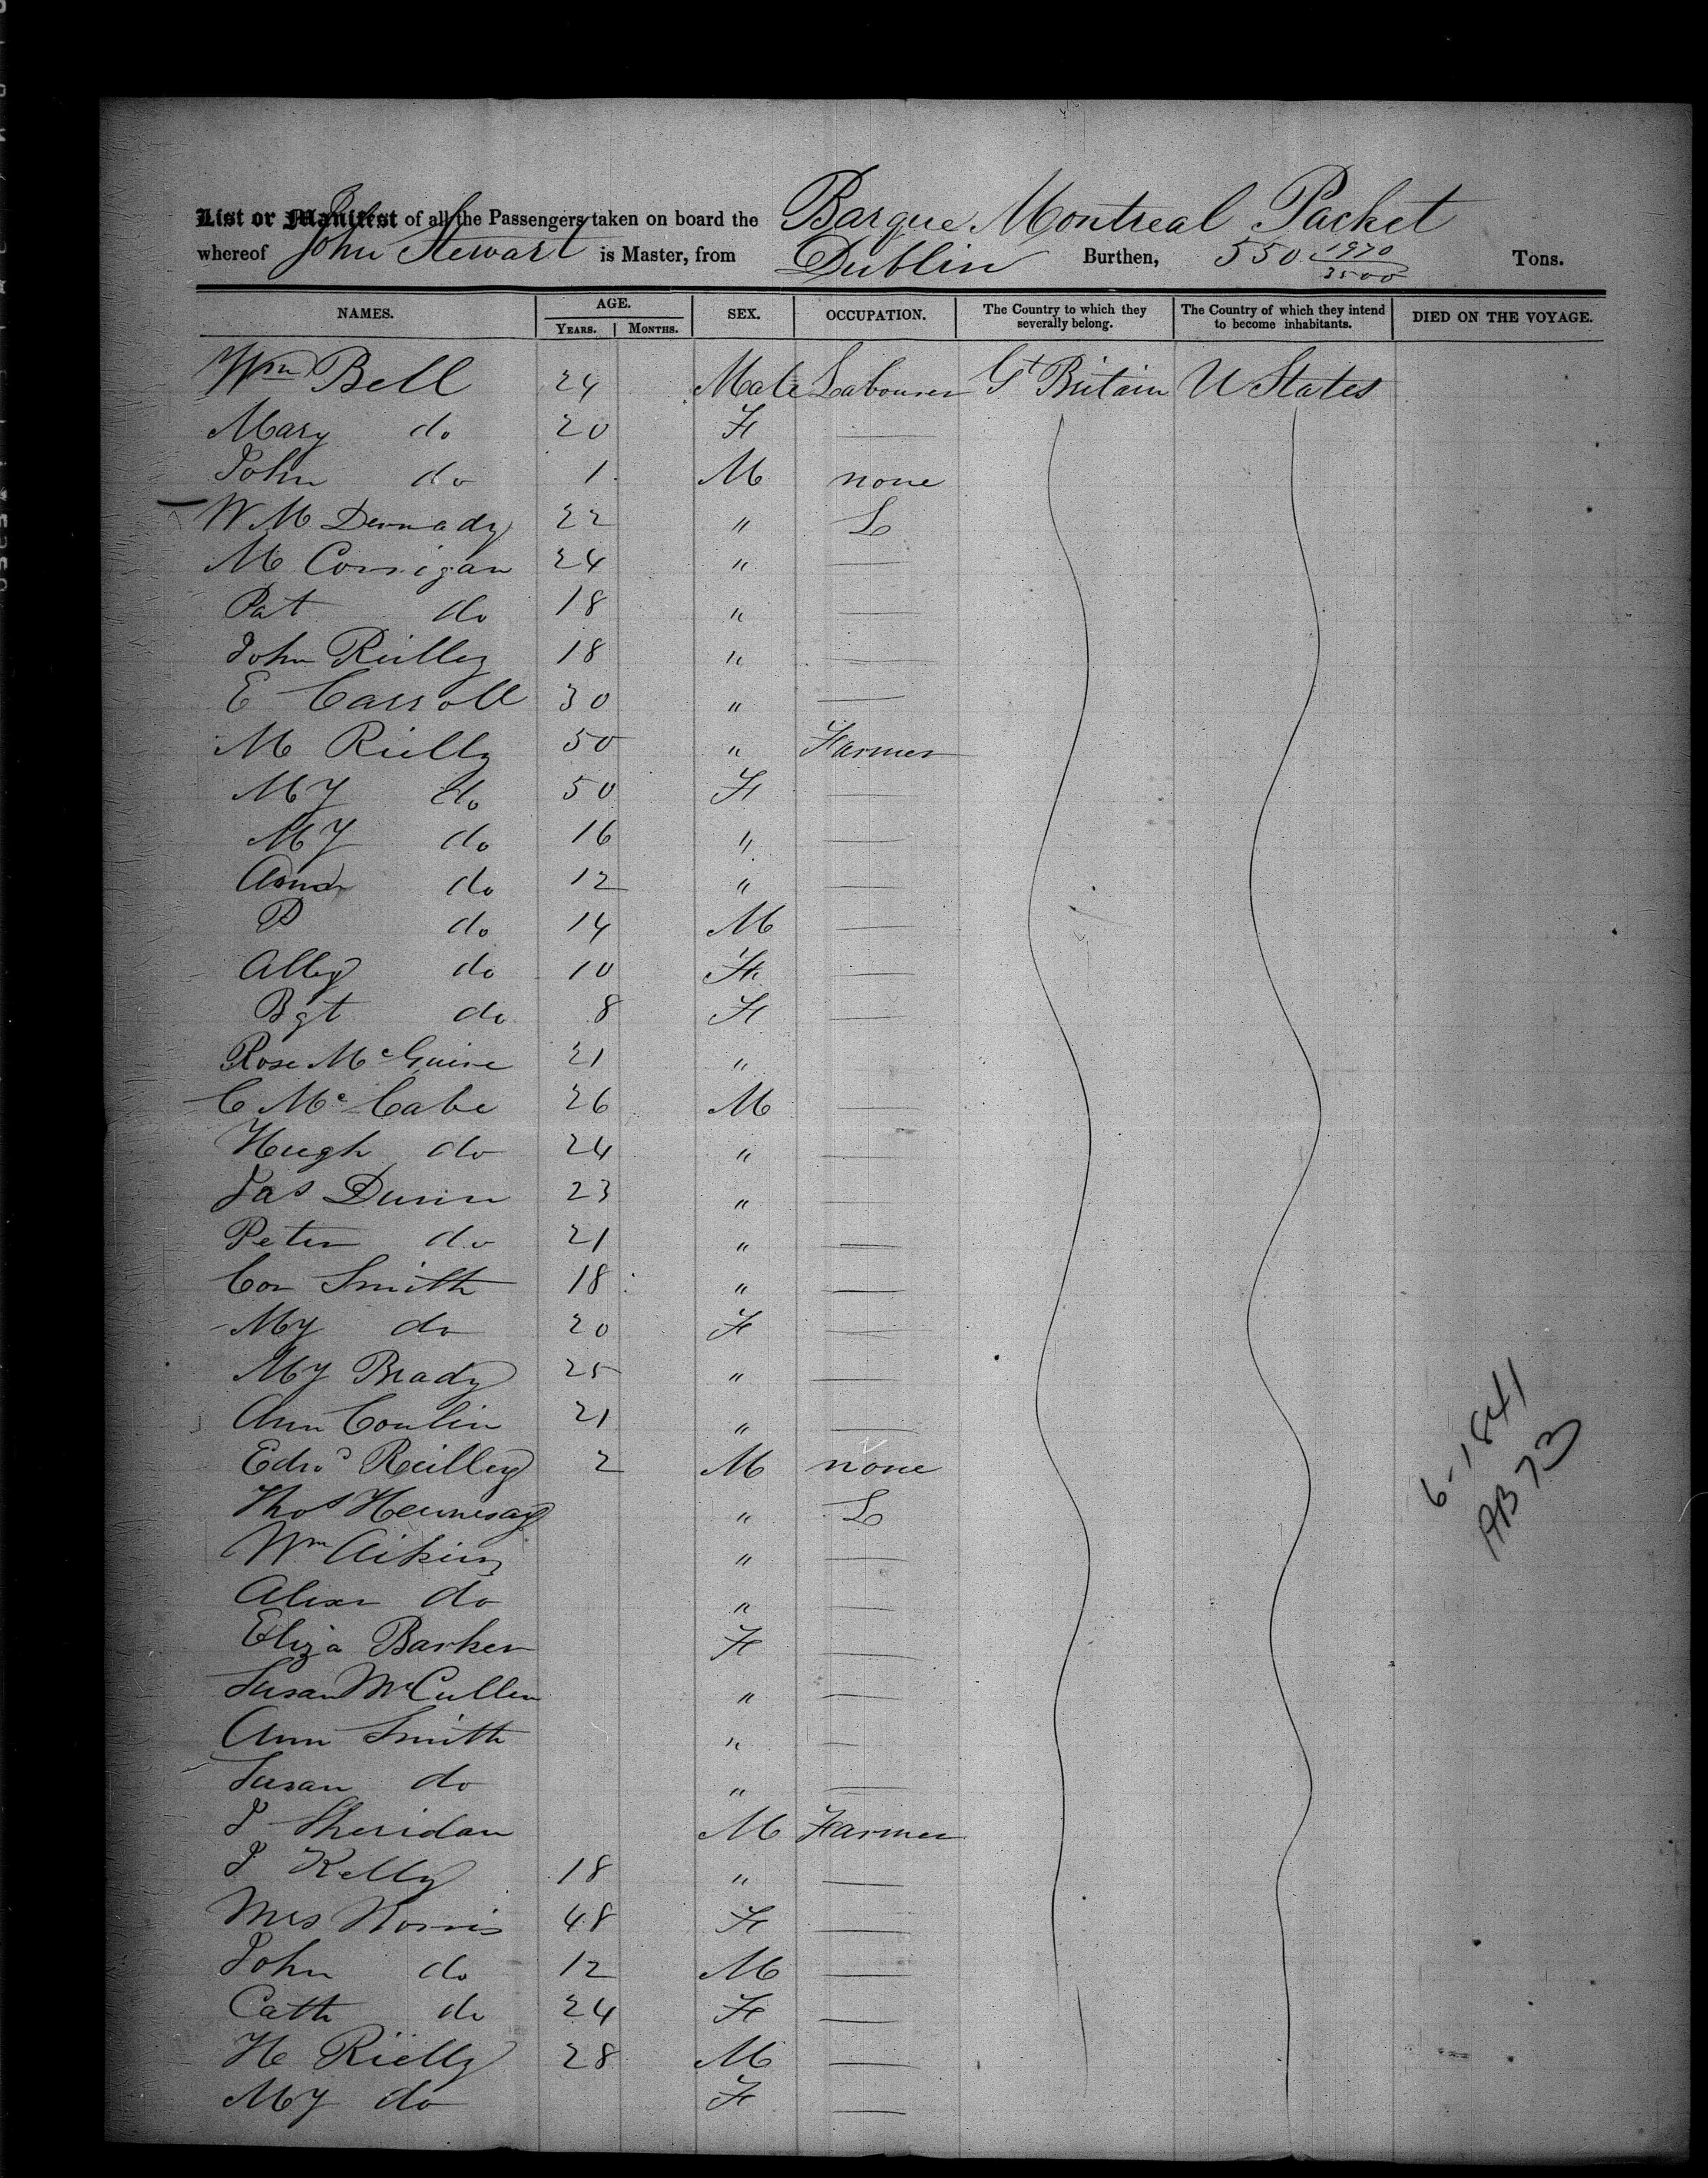 List or Manifest of all the Passengers taken on board the Barque Montreal Packet
whereof John Stewart is Master, from Dublin Burthen, 550 1970/3500 Tons.
NAMES. AGE. YEARS. MONTHS. SEX. OCCUPATION. The Country to which they severally belong. The Country of which they intend to become inhabitants. DIED ON THE VOYAGE.
Wm Bell 24 Male Labourer Gt Britain U States
Mary do 20 F —
John do 1 M none
W M Dermady 22 " L
M Corrigan 24 " —
Pat do 18 " —
John Reilley 18 " —
E Carroll 30 " —
M Rielly 50 " Farmer
My do 50 F —
My do 16 " —
Ann do 12 " —
P do 14 M —
Alley do 10 F —
Bgt do 8 F —
Rose McGuire 21 "
C McCabe 26 M —
Hugh do 24 " —
Jas Dunn 23 " —
Peter do 21 " —
Con Smith 18 " —
My do 20 F —
My Brady 25 " —
Ann Conlin 21 " —
Edwd Reilley 2 M none
Thos Hennesay " L
Wm Aikins " —
Alexr do " —
Eliza Barker F —
Susan McCullen " —
Ann Smith " —
Susan do " —
J Sheridan M Farmer
J Kelly 18 " —
Mrs Norris 48 F —
John do 12 M —
Cath do 24 F —
H Rielly 28 M —
My do F —
6-1841
AB 73